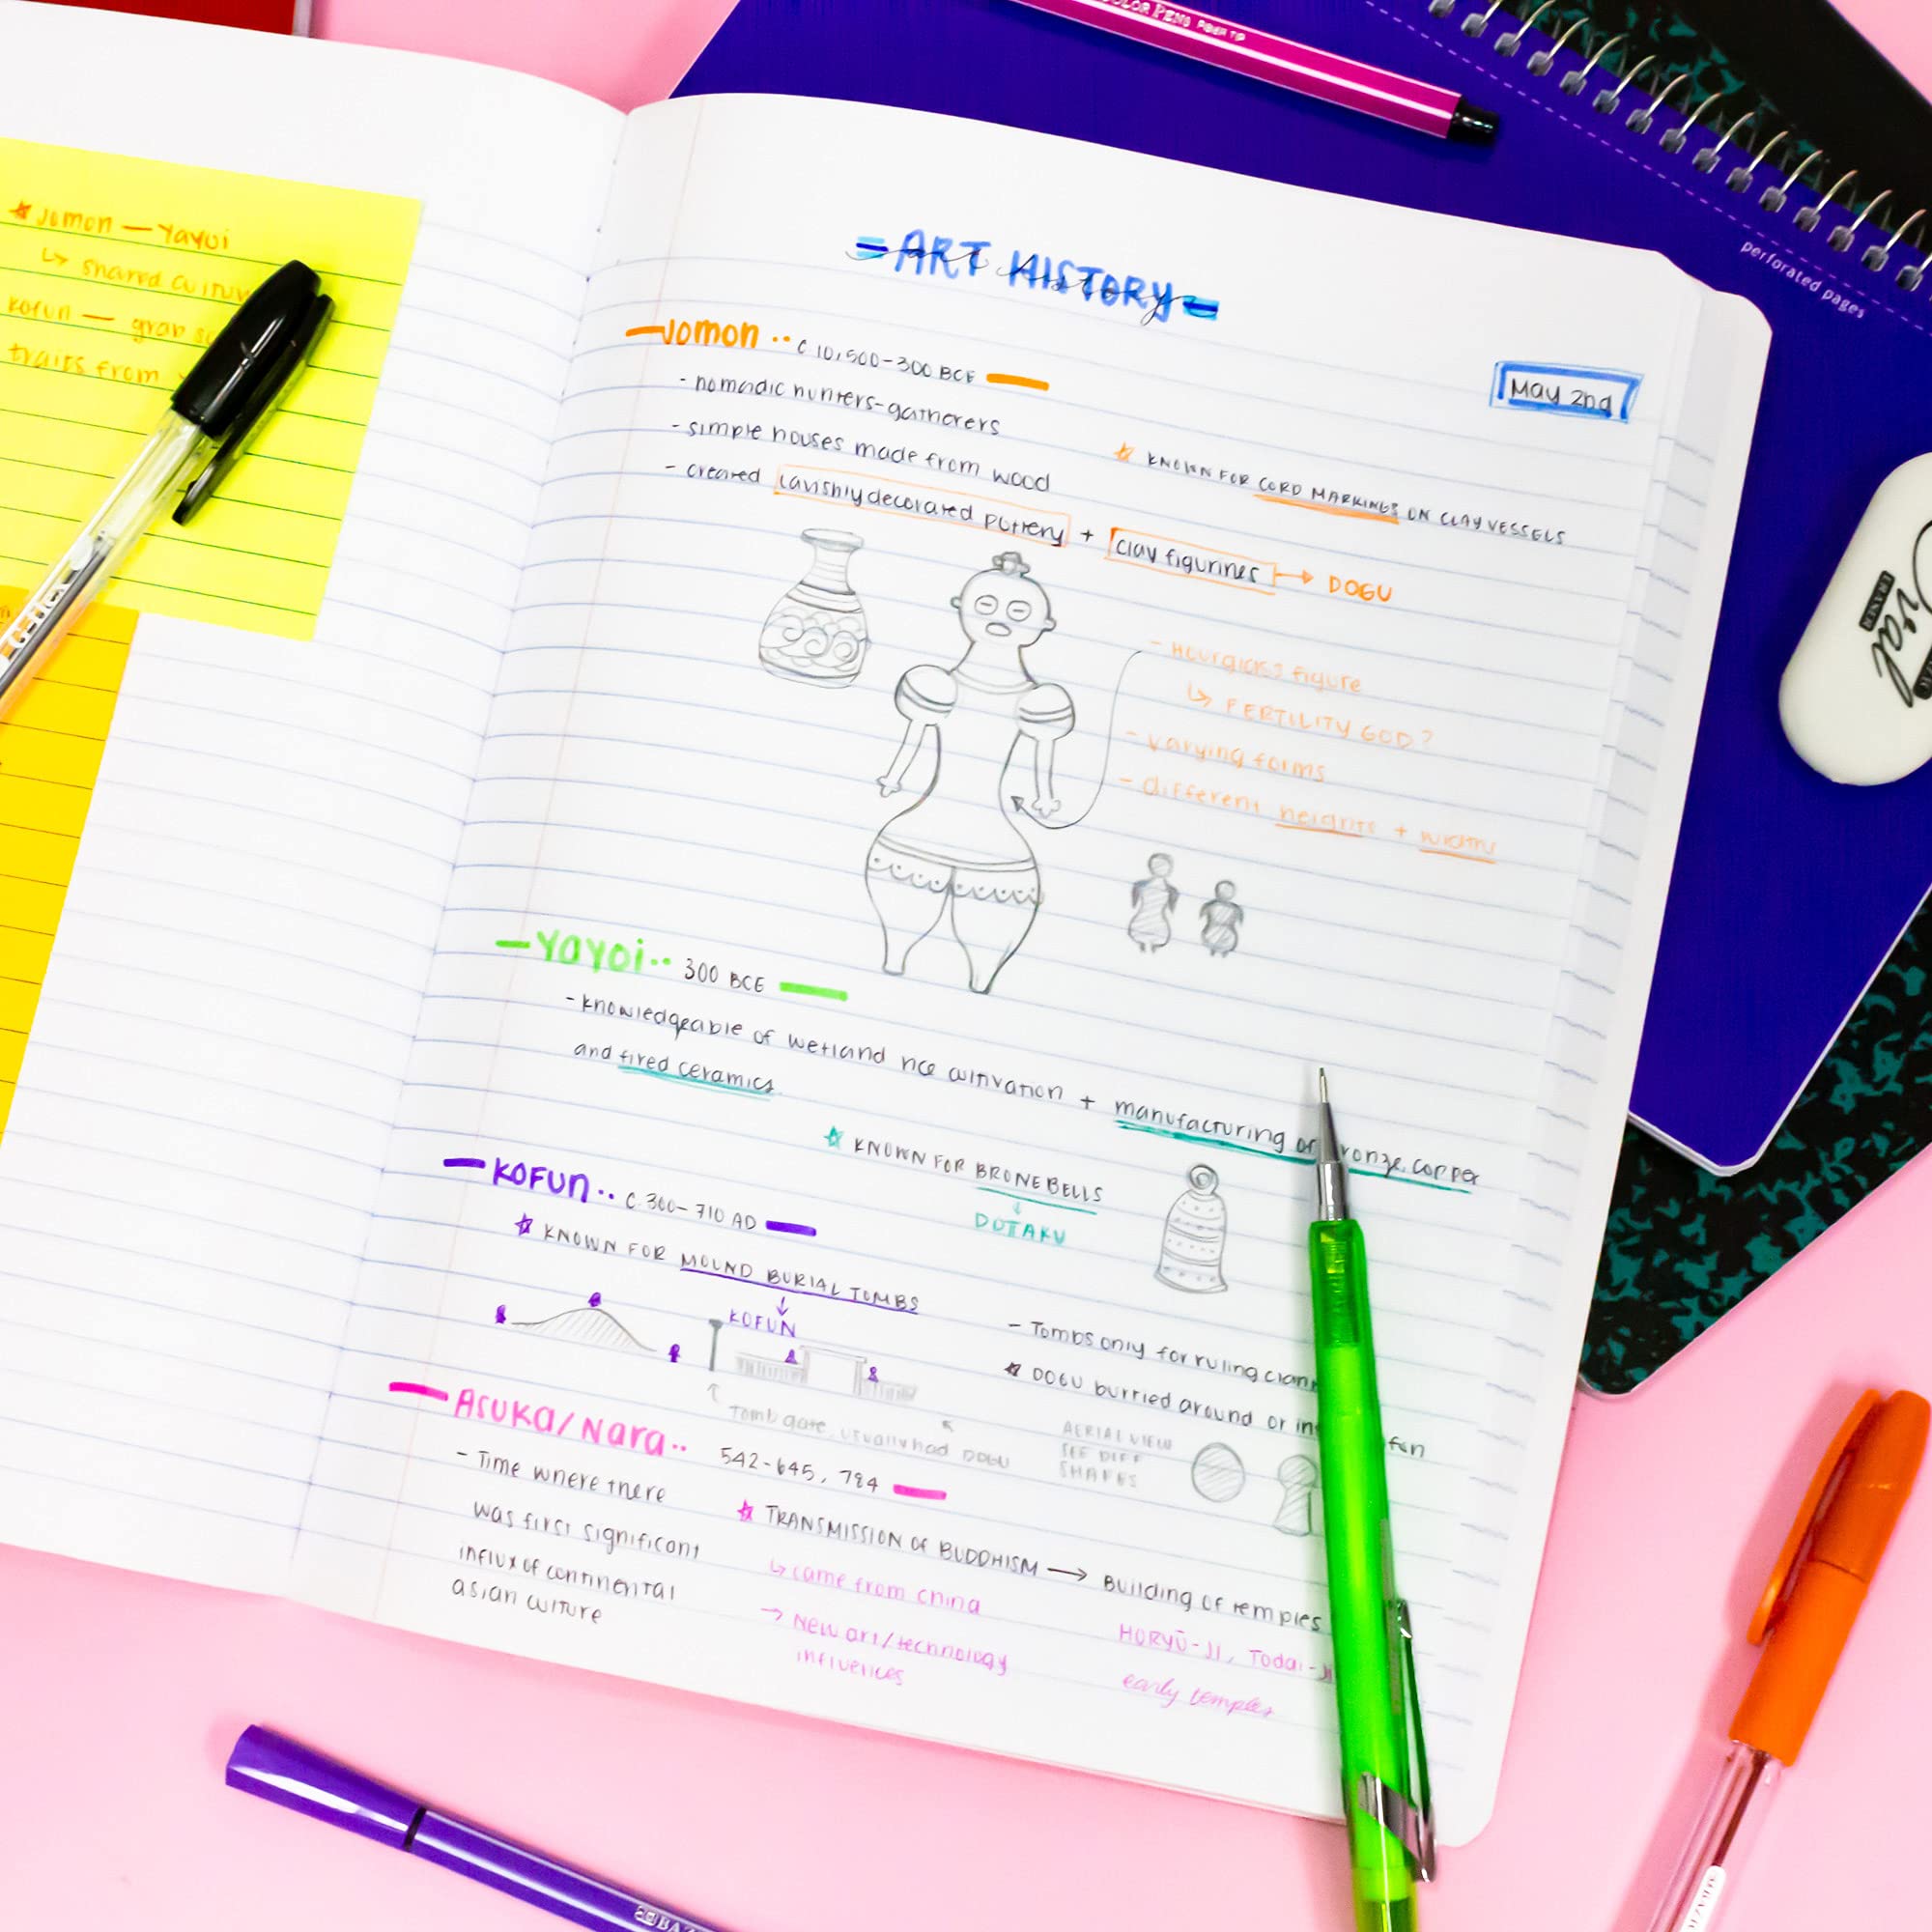 COLOR PENS FIBER TIP
perforated pages
★ Jomon — Yayoi
↳ shared
kofun — grab
traits from
= ART HISTORY =
art history
— Jomon ·· c 10,500-300 BCE —
May 2nd
- nomadic hunters-gatherers
- simple houses made from wood
☆ KNOWN FOR CORD MARKINGS ON CLAY VESSELS
- created lavishly decorated pottery + clay figurines → DOGU
- Hourglass figure
↳ FERTILITY GOD?
- varying forms
- different heights + widths
— Yayoi ·· 300 BCE —
- knowledgeable of wetland rice cultivation + manufacturing of bronze, copper
and fired ceramics
☆ KNOWN FOR BRONE BELLS
↓
DOTAKU
— KOFUN ·· c. 300-710 AD —
☆ KNOWN FOR MOUND BURIAL TOMBS
↓
KOFUN
- Tombs only for ruling
☆ DOGU burried around or
Tomb gate, usually had DOGU
AERIAL VIEW
SEE DIFF
SHAPES
— ASUKA/Nara ·· 542-645, 784 —
- Time where there
was first significant
influx of continental
asian culture
☆ TRANSMISSION OF BUDDHISM → Building of temples
↳ came from China
→ New art/technology
influences
HORYŪ-JI, Todai-Ji
early temples
ERASER